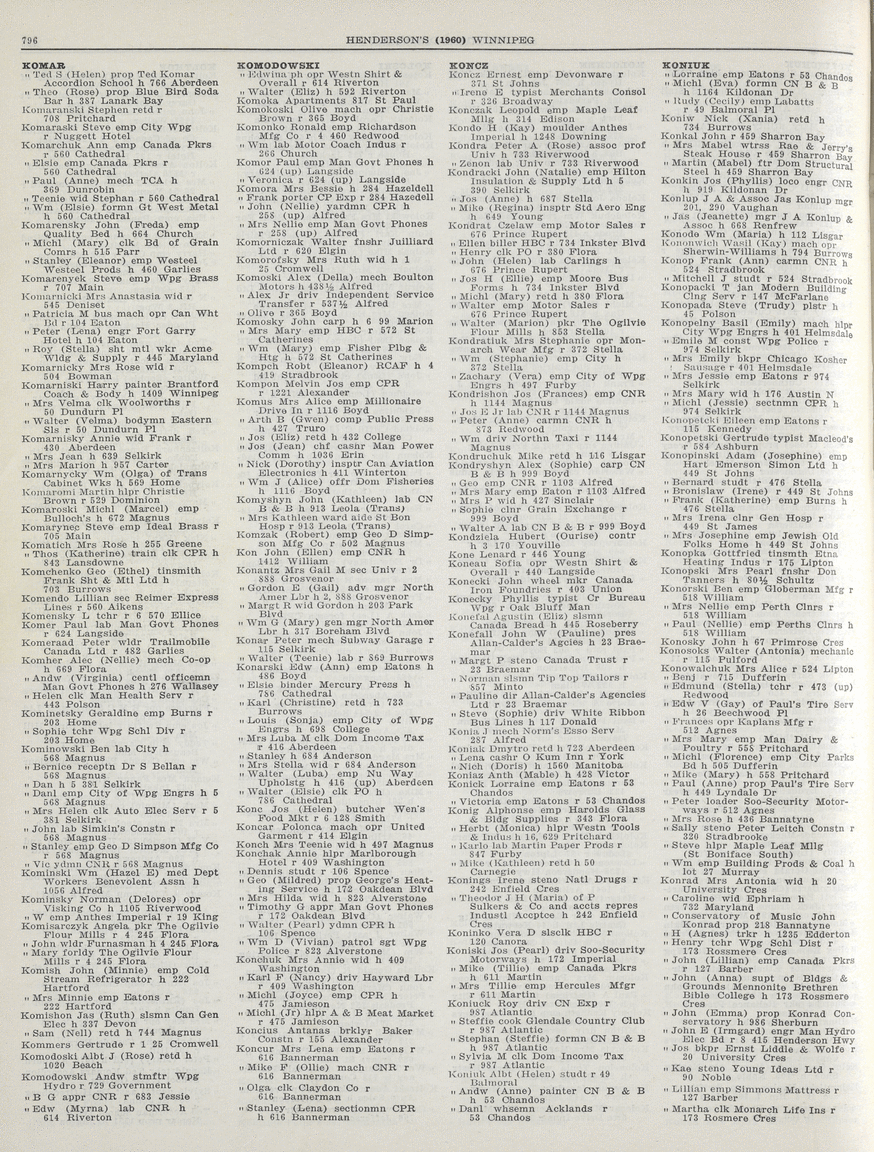 796
HENDERSON'S (1960) WINNIPEG
KOMAR
" Ted S (Helen) prop Ted Komar
Accordion School h 766 Aberdeen
" Theo (Rose) prop Blue Bird Soda
Bar h 387 Lanark Bay
Komaranski Stephen retd r
708 Pritchard
Komaraski Steve emp City Wpg
r Nuggett Hotel
Komarchuk Ann emp Canada Pkrs
r 560 Cathedral
" Elsie emp Canada Pkrs r
560 Cathedral
" Paul (Anne) mech TCA h
369 Dunrobin
" Teenie wid Stephan r 560 Cathedral
" Wm (Elsie) formn Gt West Metal
h 560 Cathedral
Komarensky John (Freda) emp
Quality Bed h 664 Church
" Michl (Mary) clk Bd of Grain
Comrs h 515 Parr
" Stanley (Eleanor) emp Westeel
Westeel Prods h 460 Garlies
Komarenyek Steve emp Wpg Brass
r 707 Main
Komarnicki Mrs Anastasia wid r
545 Deniset
" Patricia M bus mach opr Can Wht
Bd r 104 Eaton
" Peter (Lena) engr Fort Garry
Hotel h 104 Eaton
" Roy (Stella) sht mtl wkr Acme
Wldg & Supply r 445 Maryland
Komarnicky Mrs Rose wid r
504 Bowman
Komarniski Harry painter Brantford
Coach & Body h 1409 Winnipeg
" Mrs Velma clk Woolworths r
50 Dundurn Pl
" Walter (Velma) bodymn Eastern
Sls r 50 Dundurn Pl
Komarnisky Annie wid Frank r
430 Aberdeen
" Mrs Jean h 639 Selkirk
" Mrs Marion h 957 Carter
Komarnycky Wm (Olga) of Trans
Cabinet Wks h 569 Home
Komaromi Martin hlpr Christie
Brown r 529 Dominion
Komaroski Michl (Marcel) emp
Bulloch's h 672 Magnus
Komarynec Steve emp Ideal Brass r
705 Main
Komatich Mrs Rose h 255 Greene
" Thos (Katherine) train clk CPR h
843 Lansdowne
Komchenko Geo (Ethel) tinsmith
Frank Sht & Mtl Ltd h
703 Burrows
Komendo Lillian sec Reimer Express
Lines r 560 Aikens
Komensky L tchr r 6 570 Ellice
Komer Paul lab Man Govt Phones
r 624 Langside
Komerad Peter wldr Trailmobile
Canada Ltd r 482 Garlies
Komher Alec (Nellie) mech Co-op
h 669 Flora
" Andw (Virginia) centl officemn
Man Govt Phones h 276 Wallasey
" Helen clk Man Health Serv r
443 Polson
Kominetsky Geraldine emp Burns r
203 Home
" Sophie tchr Wpg Schl Div r
203 Home
Kominowski Ben lab City h
568 Magnus
" Bernice receptn Dr S Bellan r
568 Magnus
" Dan h 5 381 Selkirk
" Danl emp City of Wpg Engrs h 5
568 Magnus
" Mrs Helen clk Auto Elec Serv r 5
381 Selkirk
" John lab Simkin's Constn r
568 Magnus
" Stanley emp Geo D Simpson Mfg Co
r 568 Magnus
" Vic ydmn CNR r 568 Magnus
Kominski Wm (Hazel E) med Dept
Workers Benevolent Assn h
1056 Alfred
Kominsky Norman (Delores) opr
Visking Co h 1105 Riverwood
" W emp Anthes Imperial r 19 King
Komisarczyk Angela pkr The Ogilvie
Flour Mills r 4 245 Flora
" John wldr Furnasman h 4 245 Flora
" Mary forldy The Ogilvie Flour
Mills r 4 245 Flora
Komish John (Minnie) emp Cold
Stream Refrigerator h 222
Hartford
" Mrs Minnie emp Eatons r
222 Hartford
Komishon Jas (Ruth) slsmn Can Gen
Elec h 337 Devon
" Sam (Nell) retd h 744 Magnus
Kommers Gertrude r 1 25 Cromwell
Komodoski Albt J (Rose) retd h
1020 Beach
Komodowski Andw stmftr Wpg
Hydro r 729 Government
" B G appr CNR r 683 Jessie
" Edw (Myrna) lab CNR h
614 Riverton
KOMODOWSKI
" Edwina ph opr Westn Shirt &
Overall r 614 Riverton
" Walter (Eliz) h 592 Riverton
Komoka Apartments 817 St Paul
Komokoski Olive mach opr Christie
Brown r 365 Boyd
Komonko Ronald emp Richardson
Mfg Co r 4 460 Redwood
" Wm lab Motor Coach Indus r
266 Church
Komor Paul emp Man Govt Phones h
624 (up) Langside
" Veronica r 624 (up) Langside
Komora Mrs Bessie h 284 Hazeldell
" Frank porter CP Exp r 284 Hazedell
" John (Nellie) yardmn CPR h
258 (up) Alfred
" Mrs Nellie emp Man Govt Phones
r 258 (up) Alfred
Komorniczak Walter fnshr Juilliard
Ltd r 620 Elgin
Komorofsky Mrs Ruth wid h 1
25 Cromwell
Komoski Alex (Della) mech Boulton
Motors h 438½ Alfred
" Alex Jr driv Independent Service
Transfer r 537½ Alfred
" Olive r 365 Boyd
Komosky John carp h 6 99 Marion
" Mrs Mary emp HBC r 572 St
Catherines
" Wm (Mary) emp Fisher Plbg &
Htg h 572 St Catherines
Kompch Robt (Eleanor) RCAF h 4
419 Stradbrook
Kompon Melvin Jos emp CPR
r 1221 Alexander
Komus Mrs Alice emp Millionaire
Drive In r 1116 Boyd
" Arth B (Gwen) comp Public Press
h 427 Truro
" Jos (Eliz) retd h 432 College
" Jos (Jean) chf casnr Man Power
Comm h 1036 Erin
" Nick (Dorothy) insptr Can Aviation
Electronics h 411 Winterton
" Wm J (Alice) offr Dom Fisheries
h 1116 Boyd
Komyshyn John (Kathleen) lab CN
B & B h 913 Leola (Trans)
" Mrs Kathleen ward aide St Bon
Hosp r 913 Leola (Trans)
Komzak (Robert) emp Geo D Simp-
son Mfg Co r 502 Magnus
Kon John (Ellen) emp CNR h
1412 William
Konantz Mrs Gail M sec Univ r 2
888 Grosvenor
" Gordon E (Gail) adv mgr North
Amer Lbr h 2, 888 Grosvenor
" Margt R wid Gordon h 203 Park
Blvd
" Wm G (Mary) gen mgr North Amer
Lbr h 317 Boreham Blvd
Konar Peter mech Subway Garage r
115 Selkirk
" Walter (Teenie) lab r 869 Burrows
Konarski Edw (Ann) emp Eatons h
486 Boyd
" Elsie binder Mercury Press h
786 Cathedral
" Karl (Christine) retd h 733
Burrows
" Louis (Sonja) emp City of Wpg
Engrs h 698 College
" Mrs Luba M clk Dom Income Tax
r 416 Aberdeen
" Stanley h 684 Anderson
" Mrs Stella wid r 684 Anderson
" Walter (Luba) emp Nu Way
Upholstg h 416 (up) Aberdeen
" Walter (Elsie) clk PO h
786 Cathedral
Konc Jos (Helen) butcher Wen's
Food Mkt r 6 128 Smith
Koncar Polonca mach opr United
Garment r 414 Elgin
Konch Mrs Teenie wid h 497 Magnus
Konchak Annie hlpr Marlborough
Hotel r 409 Washington
" Dennis studt r 106 Spence
" Geo (Mildred) prop George's Heat-
ing Service h 172 Oakdean Blvd
" Mrs Hilda wid h 823 Alverstone
" Timothy G appr Man Govt Phones
r 172 Oakdean Blvd
" Walter (Pearl) ydmn CPR h
106 Spence
" Wm D (Vivian) patrol sgt Wpg
Police r 823 Alverstone
Konchuk Mrs Annie wid h 409
Washington
" Karl F (Nancy) driv Hayward Lbr
r 409 Washington
" Michl (Joyce) emp CPR h
475 Jamieson
" Michl (Jr) hlpr A & B Meat Market
r 475 Jamieson
Koncius Antanas brklyr Baker
Constn r 155 Alexander
Koncur Mrs Lena emp Eatons r
616 Bannerman
" Mike F (Ollie) mach CNR r
616 Bannerman
" Olga clk Claydon Co r
616 Bannerman
" Stanley (Lena) sectionmn CPR
h 616 Bannerman
KONCZ
Koncz Ernest emp Devonware r
371 St Johns
" Irene E typist Merchants Consol
r 326 Broadway
Konczak Leopold emp Maple Leaf
Mllg h 314 Edison
Kondo H (Kay) moulder Anthes
Imperial h 1248 Downing
Kondra Peter A (Rose) assoc prof
Univ h 733 Riverwood
" Zenon lab Univ r 733 Riverwood
Kondracki John (Natalie) emp Hilton
Insulation & Supply Ltd h 5
390 Selkirk
" Jos (Anne) h 687 Stella
" Mike (Regina) insptr Std Aero Eng
h 649 Young
Kondrat Czelaw emp Motor Sales r
676 Prince Rupert
" Ellen biller HBC r 734 Inkster Blvd
" Henry clk PO r 380 Flora
" John (Helen) lab Carlings h
676 Prince Rupert
" Jos H (Ellie) emp Moore Bus
Forms h 734 Inkster Blvd
" Michl (Mary) retd h 380 Flora
" Walter emp Motor Sales r
676 Prince Rupert
" Walter (Marion) pkr The Ogilvie
Flour Mills h 853 Stella
Kondratiuk Mrs Stephanie opr Mon-
arch Wear Mfg r 372 Stella
" Wm (Stephanie) emp City h
372 Stella
" Zachary (Vera) emp City of Wpg
Engrs h 497 Furby
Kondrishon Jos (Frances) emp CNR
h 1144 Magnus
" Jos E Jr lab CNR r 1144 Magnus
" Peter (Anne) carmn CNR h
873 Redwood
" Wm driv Northn Taxi r 1144
Magnus
Kondruchuk Mike retd h 116 Lisgar
Kondryshyn Alex (Sophie) carp CN
B & B h 999 Boyd
" Geo emp CNR r 1103 Alfred
" Mrs Mary emp Eaton r 1103 Alfred
" Mrs P wid h 427 Sinclair
" Sophie clnr Grain Exchange r
999 Boyd
" Walter A lab CN B & B r 999 Boyd
Kondziela Hubert (Ourise) contr
h 3 170 Youville
Kone Lenard r 446 Young
Koneau Sofia opr Westn Shirt &
Overall r 440 Langside
Konecki John wheel mkr Canada
Iron Foundries r 403 Union
Konecky Phyllis typist Cr Bureau
Wpg r Oak Bluff Man
Konefal Agustin (Eliz) slsmn
Canada Bread h 445 Roseberry
Konefall John W (Pauline) pres
Allan-Calder's Agcies h 23 Brae-
mar
" Margt P steno Canada Trust r
23 Braemar
" Norman slsmn Tip Top Tailors r
857 Minto
" Pauline dir Allan-Calder's Agencies
Ltd r 23 Braemar
" Steve (Sophie) driv White Ribbon
Bus Lines h 117 Donald
Konia J mech Norm's Esso Serv
287 Alfred
Koniak Dmytro retd h 723 Aberdeen
" Lena cashr O Kum Inn r York
" Nich (Doris) h 1560 Manitoba
Koniaz Anth (Mable) h 428 Victor
Konick Lorraine emp Eatons r 53
Chandos
" Victoria emp Eatons r 53 Chandos
Konig Alphonse emp Harolds Glass
& Bldg Supplies r 343 Flora
" Herbt (Monica) hlpr Westn Tools
& Indus h 16, 629 Pritchard
" Karlo lab Martin Paper Prods r
847 Furby
" Mike (Kathleen) retd h 50
Carnegie
Konings Irene steno Natl Drugs r
242 Enfield Cres
" Theodor J H (Maria) of P
Sulkers & Co and accts repres
Industl Accptce h 242 Enfield
Cres
Koninko Vera D slsclk HBC r
120 Canora
Koniski Jos (Pearl) driv Soo-Security
Motorways h 172 Imperial
" Mike (Tillie) emp Canada Pkrs
h 611 Martin
" Mrs Tillie emp Hercules Mfgr
r 611 Martin
Koniuck Roy driv CN Exp r
987 Atlantic
" Steffie cook Glendale Country Club
r 987 Atlantic
" Stephan (Steffie) formn CN B & B
h 987 Atlantic
" Sylvia M clk Dom Income Tax
r 987 Atlantic
Koniuk Albt (Helen) studt r 49
Balmoral
" Andw (Anne) painter CN B & B
h 53 Chandos
" Danl whsemn Acklands r
53 Chandos
KONIUK
" Lorraine emp Eatons r 53 Chandos
" Michl (Eva) formn CN B & B
h 1164 Kildonan Dr
" Rudy (Cecily) emp Labatts
r 49 Balmoral Pl
Koniw Nick (Xania) retd h
734 Burrows
Konkal John r 459 Sharron Bay
" Mrs Mabel wtrss Rae & Jerry's
Steak House r 459 Sharron Bay
" Martin (Mabel) ftr Dom Structural
Steel h 459 Sharron Bay
Konkin Jos (Phyllis) loco engr CNR
h 919 Kildonan Dr
Konlup J A & Assoc Jas Konlup mgr
201, 290 Vaughan
" Jas (Jeanette) mgr J A Konlup &
Assoc h 668 Renfrew
Konodo Wm (Maria) h 112 Lisgar
Kononwich Wasil (Kay) mach opr
Sherwin-Williams h 794 Burrows
Konop Frank (Ann) carmn CNR h
524 Stradbrook
" Mitchell J studt r 524 Stradbrook
Konopacki T jan Modern Building
Clng Serv r 147 McFarlane
Konopada Steve (Trudy) plstr h
45 Polson
Konopelny Basil (Emily) mach hlpr
City Wpg Engrs h 401 Helmsdale
" Emile M const Wpg Police r
974 Selkirk
" Mrs Emily bkpr Chicago Kosher
Sausage r 401 Helmsdale
" Mrs Jessie emp Eatons r 974
Selkirk
" Mrs Mary wid h 176 Austin N
" Michl (Jessie) sectnmn CPR h
974 Selkirk
Konopetcki Eileen emp Eatons r
115 Kennedy
Konopetski Gertrude typist Macleod's
r 584 Ashburn
Konopinski Adam (Josephine) emp
Hart Emerson Simon Ltd h
449 St Johns
" Bernard studt r 476 Stella
" Bronislaw (Irene) r 449 St Johns
" Frank (Katherine) emp Burns h
476 Stella
" Mrs Irena clnr Gen Hosp r
449 St James
" Mrs Josephine emp Jewish Old
Folks Home h 449 St Johns
Konopka Gottfried tinsmth Etna
Heating Indus r 175 Lipton
Konopski Mrs Pearl fnshr Don
Tanners h 80½ Schultz
Konorski Ben emp Globerman Mfg r
518 William
" Mrs Nellie emp Perth Clnrs r
518 William
" Paul (Nellie) emp Perths Clnrs h
518 William
Konosky John h 67 Primrose Cres
Konosoks Walter (Antonia) mechanic
r 115 Pulford
Konowalchuk Mrs Alice r 524 Lipton
" Benj r 715 Dufferin
" Edmund (Stella) tchr r 473 (up)
Redwood
" Edw V (Gay) of Paul's Tire Serv
h 26 Beechwood Pl
" Frances opr Kaplans Mfg r
512 Agnes
" Mrs Mary emp Man Dairy &
Poultry r 558 Pritchard
" Michl (Florence) emp City Parks
Bd h 505 Dufferin
" Mike (Mary) h 558 Pritchard
" Paul (Anne) prop Paul's Tire Serv
h 449 Lyndale Dr
" Peter loader Soo-Security Motor-
ways r 512 Agnes
" Mrs Rose h 436 Bannatyne
" Sally steno Peter Leitch Constn r
320 Stradbrooke
" Steve hlpr Maple Leaf Mllg
(St Boniface South)
" Wm emp Building Prods & Coal h
lot 27 Murray
Konrad Mrs Antonia wid h 20
University Cres
" Caroline wid Ephriam h
732 Maryland
" Conservatory of Music John
Konrad prop 218 Bannatyne
" H (Agnes) trkr h 1235 Edderton
" Henry tchr Wpg Schl Dist r
173 Rossmere Cres
" John (Lillian) emp Canada Pkrs
r 127 Barber
" John (Anna) supt of Bldgs &
Grounds Mennonite Brethren
Bible College h 173 Rossmere
Cres
" John (Emma) prop Konrad Con-
servatory h 986 Sherburn
" John E (Irmgard) engr Man Hydro
Elec Bd r 8 415 Henderson Hwy
" Jos bkpr Ernst Liddle & Wolfe r
20 University Cres
" Kae steno Young Ideas Ltd r
90 Noble
" Lillian emp Simmons Mattress r
127 Barber
" Martha clk Monarch Life Ins r
173 Rosmere Cres